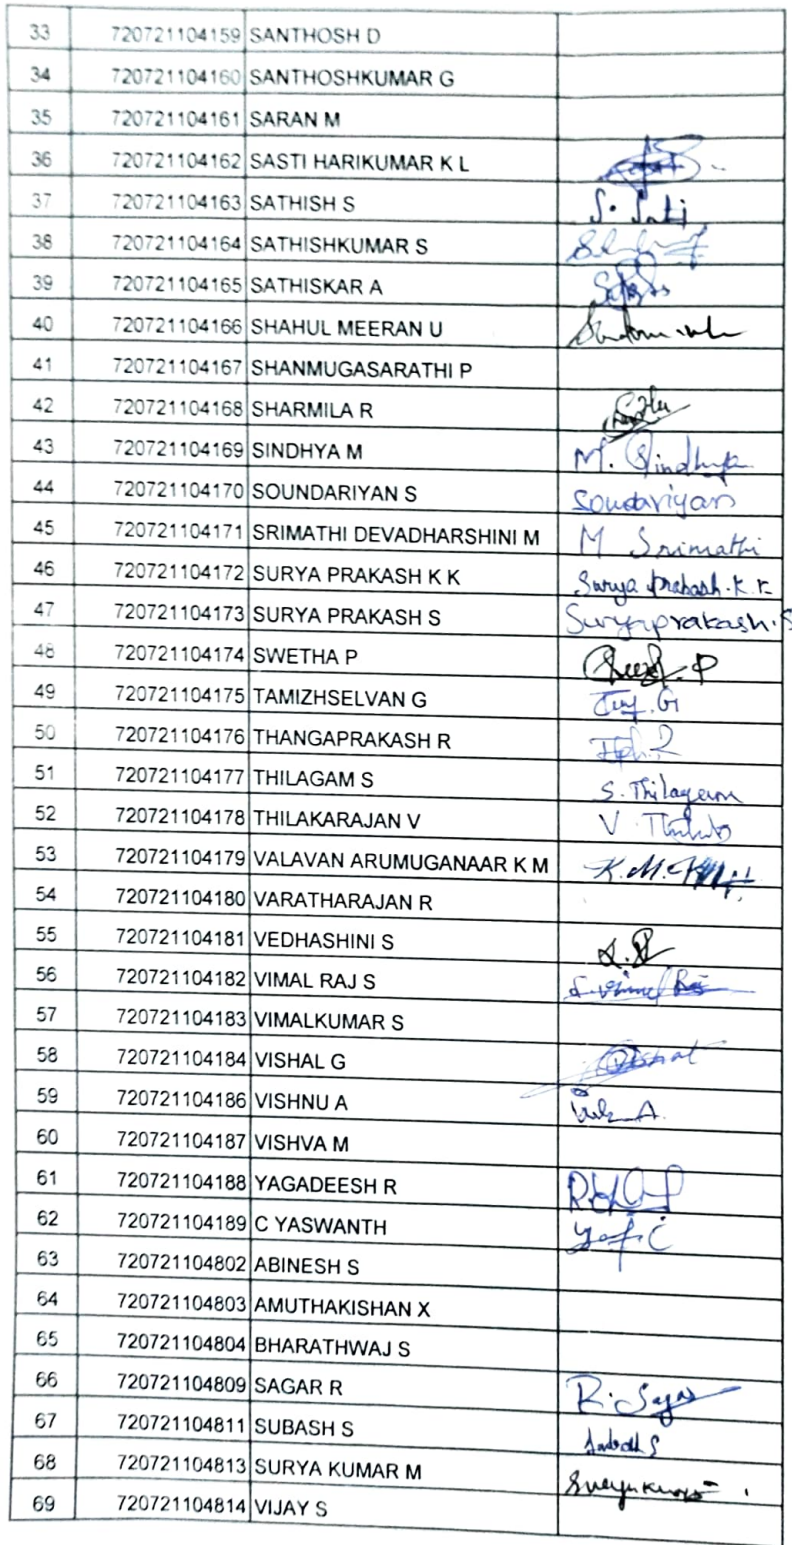 33 720721104159 SANTHOSH D
34 720721104160 SANTHOSHKUMAR G
35 720721104161 SARAN M
36 720721104162 SASTI HARIKUMAR K L
37 720721104163 SATHISH S S. Sati
38 720721104164 SATHISHKUMAR S
39 720721104165 SATHISKAR A
40 720721104166 SHAHUL MEERAN U
41 720721104167 SHANMUGASARATHI P
42 720721104168 SHARMILA R
43 720721104169 SINDHYA M M. Sindhya
44 720721104170 SOUNDARIYAN S Soundariyan
45 720721104171 SRIMATHI DEVADHARSHINI M M Srimathi
46 720721104172 SURYA PRAKASH K K Surya prakash. K. K
47 720721104173 SURYA PRAKASH S Suryaprakash. S
48 720721104174 SWETHA P P
49 720721104175 TAMIZHSELVAN G G
50 720721104176 THANGAPRAKASH R
51 720721104177 THILAGAM S S. Thilagam
52 720721104178 THILAKARAJAN V V
53 720721104179 VALAVAN ARUMUGANAAR K M K.M.
54 720721104180 VARATHARAJAN R
55 720721104181 VEDHASHINI S
56 720721104182 VIMAL RAJ S S. Vimal Raj
57 720721104183 VIMALKUMAR S
58 720721104184 VISHAL G Vishal
59 720721104186 VISHNU A A.
60 720721104187 VISHVA M
61 720721104188 YAGADEESH R
62 720721104189 C YASWANTH
63 720721104802 ABINESH S
64 720721104803 AMUTHAKISHAN X
65 720721104804 BHARATHWAJ S
66 720721104809 SAGAR R R. Sagar
67 720721104811 SUBASH S Subash S
68 720721104813 SURYA KUMAR M Suryakumar
69 720721104814 VIJAY S